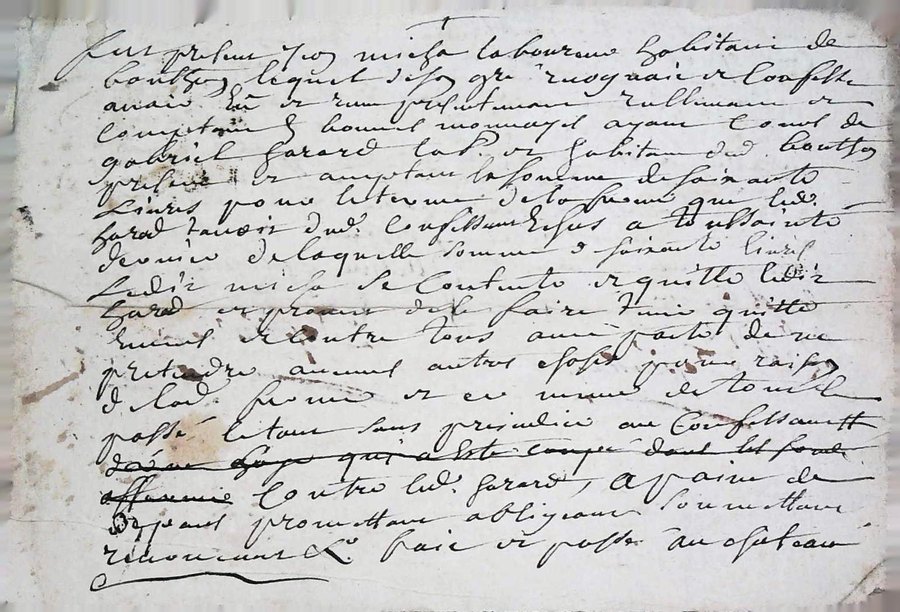 fut present Jean micha laboureur habitant de
bouthéon lequel de son gré recognait et Confesse
avoir Eu et receu presentement reellement et
Comptant En bonnes monnayes ayant Cours de
gabriel Gerard lab. et habitant dud. bouthéon
present et acceptant la somme de soixante
Livres pour le terme de la ferme que led.
Gerard tenoit dud. Confessant Escheu a toussainte
dernier de laquelle somme de soixante livres
Ledit micha se Contente et quitte ledit
Gerard et promet de le faire tenir quitte
Envers et contre tous avec pacte de ne
pretendre aucunes autres choses pour raison
de lad. ferme et ce un de tout le
passé le tout sans prejudice au Confessant
qui a esté coupé dans les fonds
affermé Contre led. Gerard, a paine de
despans promettant obligeant soumettant
renoncant &c. faict et passé au chateau